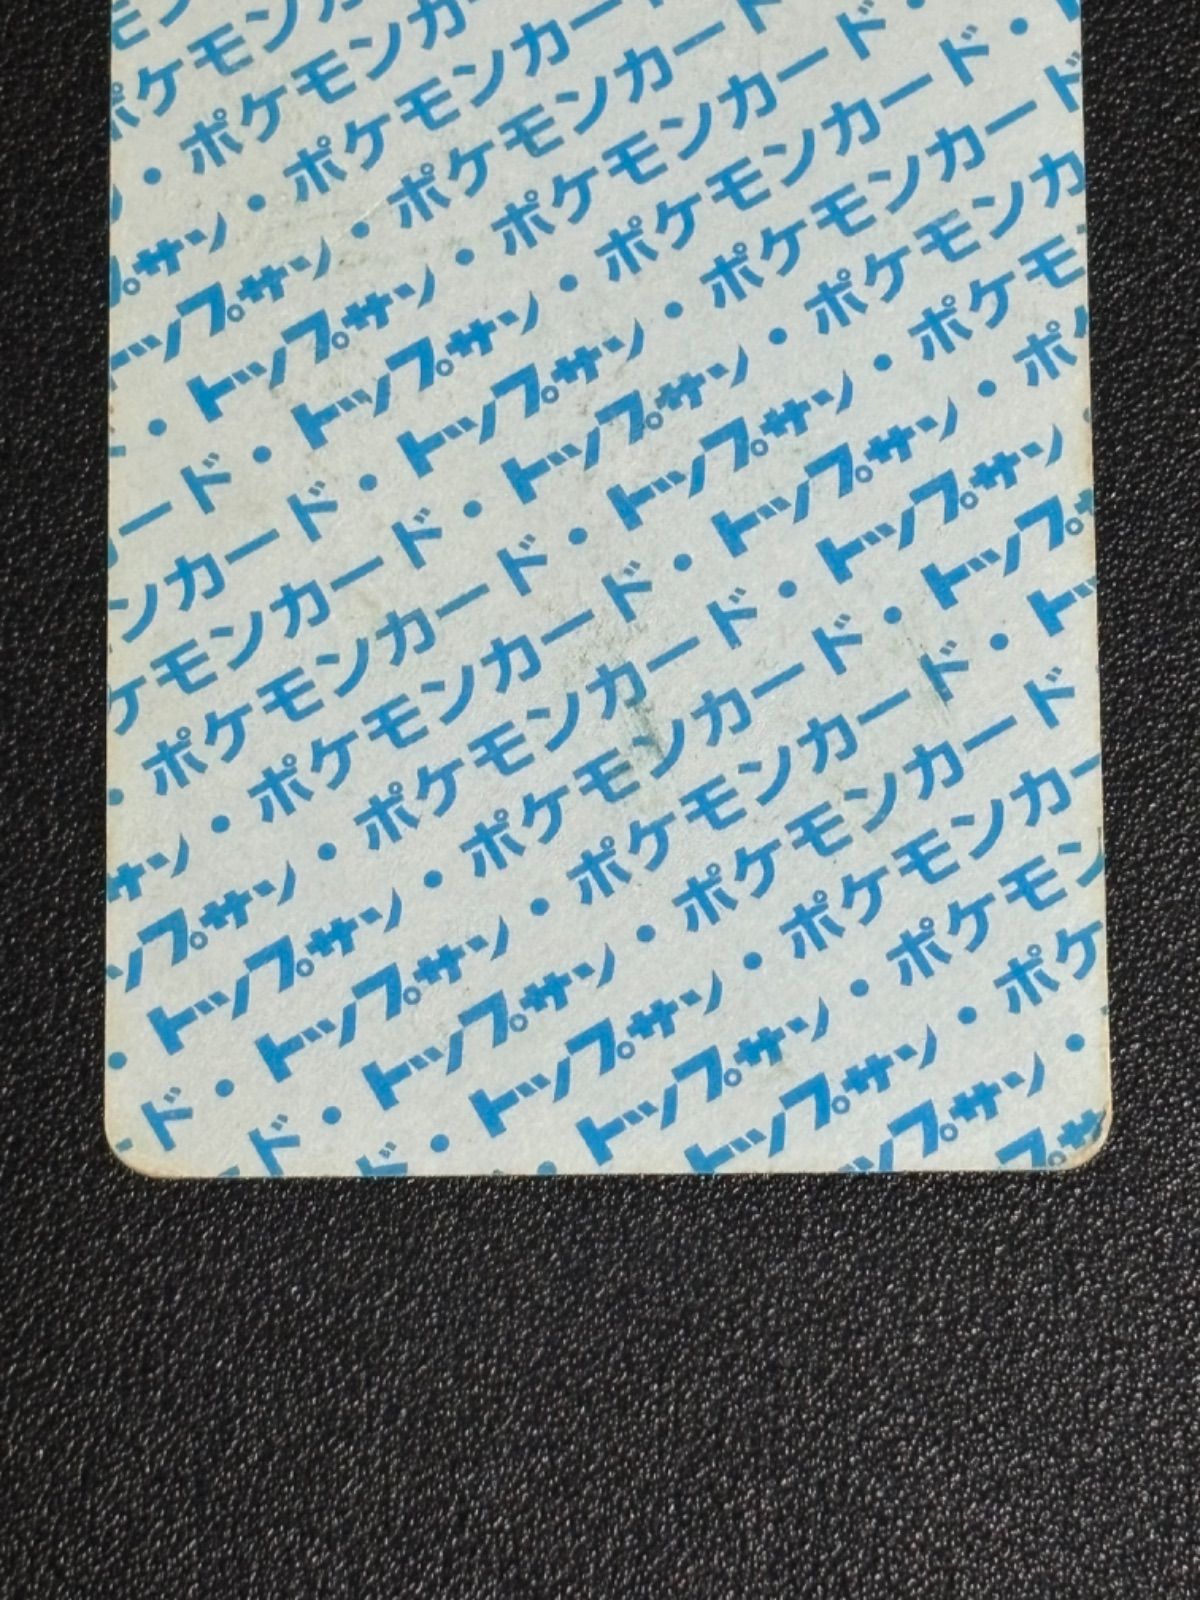 モンカ
ポケモンカード
・ポケモンカード
・ポケモンカード・
トップサン・ポケモンカード
トップサン・ポケモンカード
・トップサン・ポケモンカ
ード・トップサン・ポケモ
ンカード・トップサン・ポケ
ケモンカード・トップサン・ポ
・ポケモンカード・トップサン
サン・ポケモンカード・トップサン
ップサン・ポケモンカード・トップ
・トップサン・ポケモンカード・ト
ド・トップサン・ポケモンカード
ド・トップサン・ポケモンカー
ド・トップサン・ポケモン
トップサン・ポケ
トップサン・
トップサン
トップサ